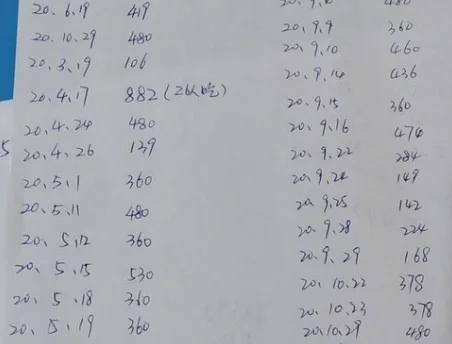 20.6.19 419
20.10.29 480
20.3.19 106
20.4.17 882(2人吃)
20.4.24 480
5
20.4.26 139
20.5.1 360
20.5.11 480
20.5.12 360
20.5.15 530
20.5.18 360
20.5.19 360
20.9.9 360
20.9.10 460
20.9.14 436
20.9.15 360
20.9.16 474
20.9.22 284
20.9.24 149
20.9.25 142
20.9.28 224
20.9.29 168
20.10.22 378
20.10.23 378
20.10.29 480